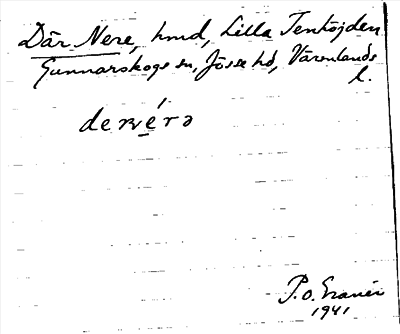 Där Nere, hmd, Lilla Tenhöjden
Gunnarskogs sn, Jösse hd, Värmlands
l.
P.O.
1941